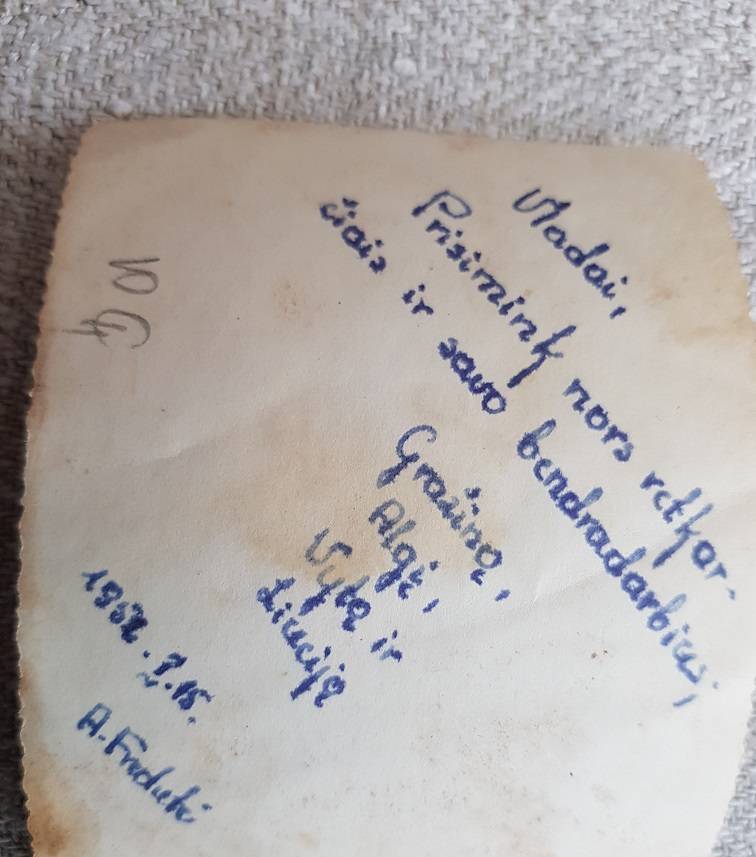 Vladai,
Prisimink nors retkar-
čiais ir savo bendradarbius;
Gražiną,
Algį,
Vytą ir
Liuciją
A. Fredutė